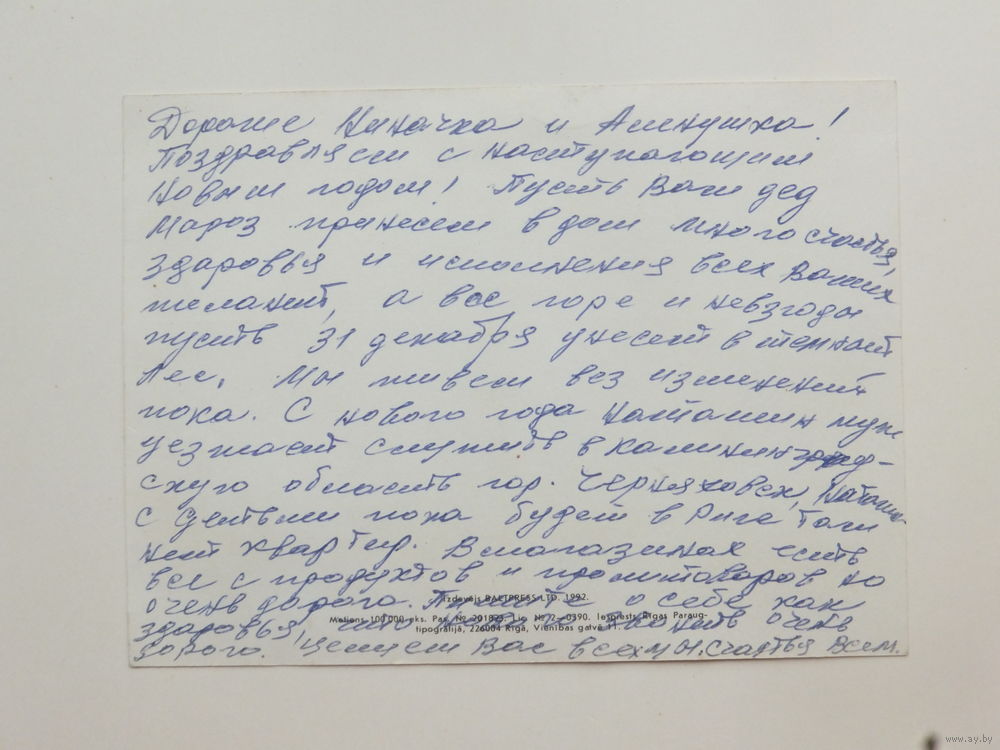 Дорогие Ниночка и Аленушка!
Поздравляем с наступающим
Новым годом! Пусть Ваш дед
Мароз принесет в дом много счастья,
здаровья и исполнения всех Ваших
желаний, а все горе и невзгоды
пусть 31 декабря унесет в темный
лес. Мы живем без изменений
пока. С нового года Наташин муж
уезжает служить в Калининград-
скую область гор. Черняховск, Наташа
с детьми пока будет в Риге там
нет квартир. В магазинах есть
все с продуктов и промтоваров но
очень дорого. Пишите о себе как
здаровья, звонить очень
дорого. Целуем Вас всех мы. Счастья Всем.
Izdevējs BALTPRESS LTD. 1992.
Metiens 100 000 eks. Pas. № 201875. Lic. № 2—0390. Iespiests Rīgas Paraug-
tipogrāfijā, 226004 Rīgā, Vienības gatvē 11.
www.ay.by